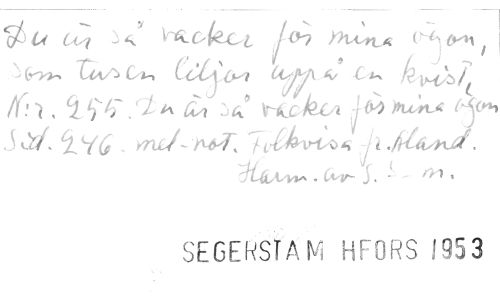 Du är så vacker för mina ögon,
som tusen liljor uppå en kvist,
N:r. 255. Du är så vacker för mina ögon
Sid. 246. mel-not. Folkvisa fr. Åland.
Harm. av S. S-m.
SEGERSTAM HFORS 1953